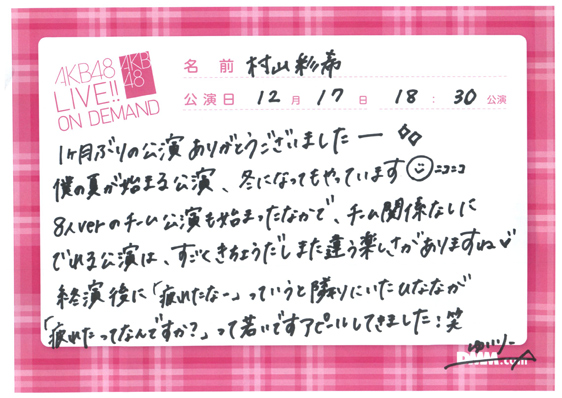 AKB48
LIVE!!
ON DEMAND
AKB
48
名前 村山彩希
公演日 12月17日 18:30公演
1ヶ月ぶりの公演ありがとうございましたー
僕の夏が始まる公演、冬になってもやっています ニコニコ
8人verのチーム公演も始まったなかで、チーム関係なしに
でれる公演は、すごくきちょうだしまた違う楽しさがありますね♡
終演後に「疲れたなー」っていうと隣りにいたひななが
「疲れたってなんですか?」って若いですアピールしてきました!笑
ゆいりー
DMM.com